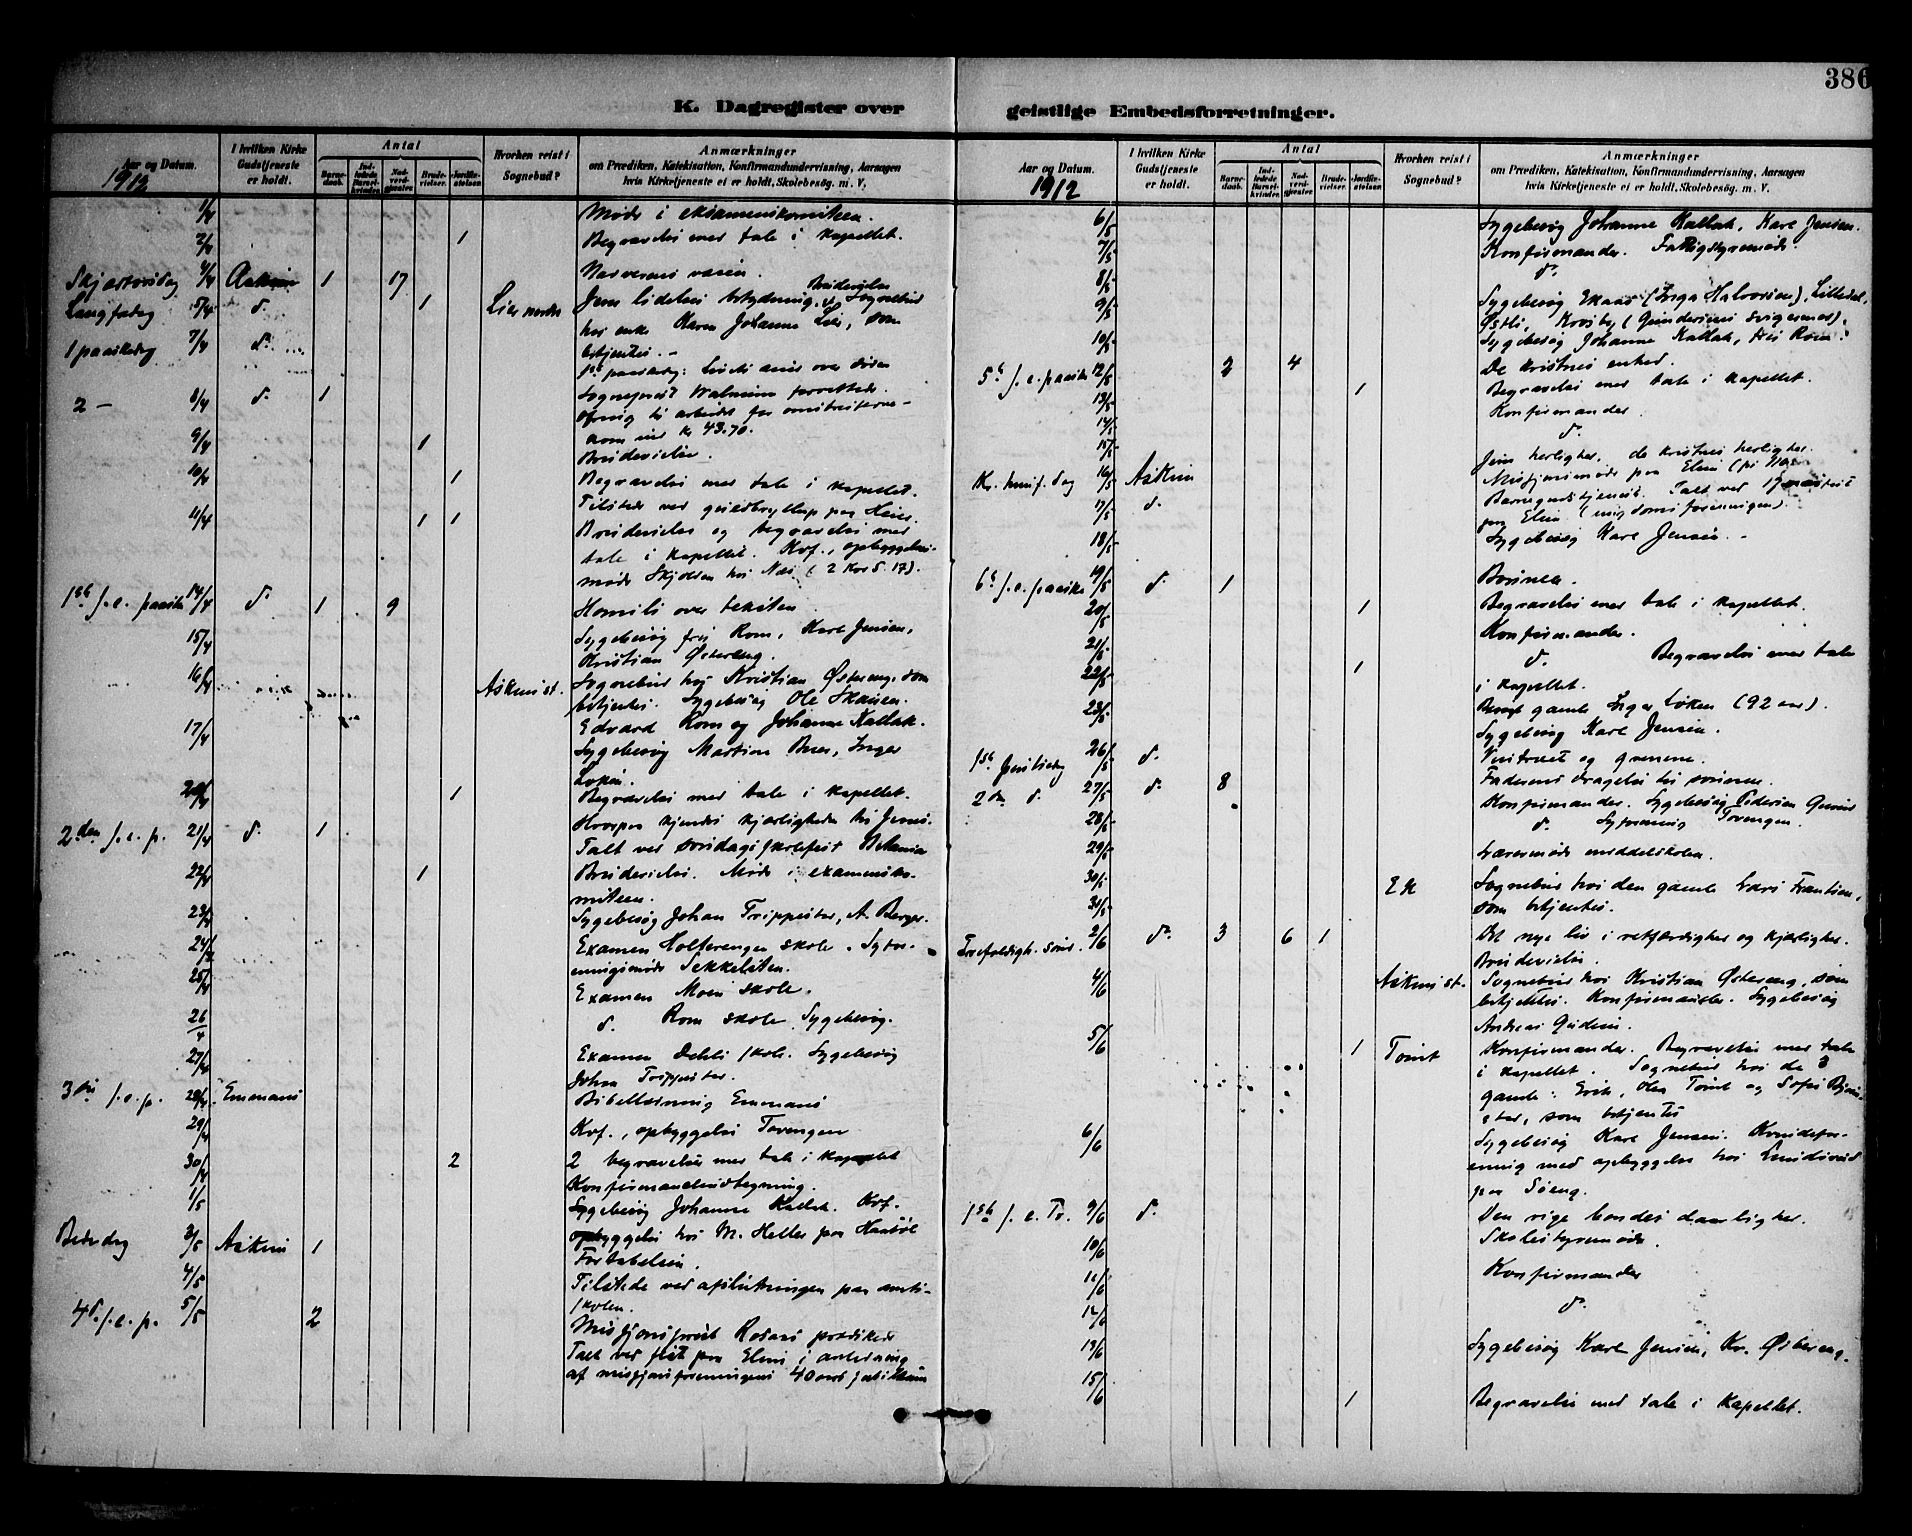 386
K. Dagregister over
Aar og Datum.
I hvilken Kirke Gudstjeneste er holdt.
Antal
Barnedaab.
Indledede Barselkvinder.
Nadverdgjester.
Brudevielser.
Jordfæstelser.
Hvorhen reist i Sognebud?
Anmærkninger
om Prædiken, Katekisation, Konfirmandundervisning, Aarsagen
hvis Kirketjeneste ei er holdt, Skolebesøg. m. V.
1912
1/4 Møde i eksamenskomiteen.
2/4 1 Begravelse med tale i kapellet.
Skjærtorsdag 4/4 Askim 1 17 Nadverens væsen.
Langfredag 5/4 d. 1 Lier nordre Jesu lidelses betydning. Brudevielse og Sognebud
hos enke Karen Johanne Lier, som
betjentes. -
1 paaskedag 7/4 d. 1st paaskedag: Livets seier over døden
2 - 8/4 d. 1 Sogneprest
Ofring til arbeidet for omstreiferne -
kom ind kr 43.70.
9/4 1 Brudevielse.
10/4 1 Begravelse med tale i kapellet.
Tilstede ved guldbryllup paa
11/4 1 1 Brudevielse og begravelse med
tale i kapellet. Kvf., opbyggelses-
møde Skjolden hos Næs (2 Kor 5. 17).
1st s. e. paaske 14/4 d. 1 9 Homili over teksten
15/4 Sygebesøg frøi Rom, Karl Jensen,
Kristian Østereng.
16/4 Askim st. Sognebud hos Kristian Østereng, som
betjentes. Sygebesøg Ole Skausen.
17/4 Edvard Rom og Johanne Kallak.
Sygebesøg Martin Bues, Inger
Løken.
20/4 1 Begravelse med tale i kapellet.
2den s. e. p. 21/4 d. 1 Hvorpaa kjendes kjærligheden til Jesus.
Talt ved søndagsskolefest Betania
22/4 1 Brudevielse. Møde i examensko-
miteen.
23/4 Sygebesøg Johan Trippestad, A. Berger.
24/4 Examen Holterengen skole. Syfor-
eningsmøde Sekkelsten.
25/4 Examen Moen skole.
26/4 d. Rom skole. Sygebesøg.
27/4 Examen Dehli skole. Sygebesøg
Johan Trippestad.
3die s. e. p. 28/4 Emmaus Bibellæsning Emmaus
29/4 Kvf., opbyggelse Tovengen
30/4 2 2 begravelser med tale i kapellet
Konfirmandindtegning.
1/5 Sygebesøg Johanne Kallak. Kvf.
opbyggelse hos M. Heller paa
Bededag 3/5 Askim 1 Fortabelsen.
4/5 Tilstede ved afslutningen paa amts-
skolen.
4d. s. e. p. 5/5 2 Misjonsprest Rosaas prædikede
Talt ved fest paa Elim i anledning
af misjonsforeningens 40 aars jubilæum
geistlige Embedsforretninger.
Aar og Datum.
I hvilken Kirke Gudstjeneste er holdt.
Antal
Barnedaab.
Indledede Barselkvinder.
Nadverdgjester.
Brudevielser.
Jordfæstelser.
Hvorhen reist i Sognebud?
Anmærkninger
om Prædiken, Katekisation, Konfirmandundervisning, Aarsagen
hvis Kirketjeneste ei er holdt, Skolebesøg. m. V.
1912
6/5 Sygebesøg Johanne Kallak, Karl Jensen.
7/5 Konfirmander. Fattigstyremøde.
8/5 d.
9/5 Sygebesøg Ekaas (Inga Halvorsen), Lilledal,
Østli, Krosby (Gundersens svigermor).
10/5 Sygebesøg Johanne Kallak, frøi Rom.
5t s. e. paaske 12/5 2 4 De kristnes enhed.
13/5 1 Begravelse med tale i kapellet.
14/5 Konfirmander.
15/5 d.
Kr. himf. dag 16/5 Askim Jesu herlighed, de kristnes herlighed.
Misjonsmøde paa Elim
17/5 d. Barnegudstjeneste. Talt ved 17 mai fest
paa Elim (ungdomsforeningen).
18/5 Sygebesøg Karl Jensen. -
6t s. e. paaske 19/5 d. 1 Bønnen.
20/5 1 Begravelse med tale i kapellet.
21/5 Konfirmander.
22/5 1 d. Begravelse med tale
i kapellet.
23/5 Besøgt gamle Inger Løken (92 aar).
Sygebesøg Karl Jensen.
1st pinsedag 26/5 d. Vintræet og grenene.
2den d. 27/5 d. 8 Faderens dragelse til sønnen.
28/5 Konfirmander. Sygebesøg Pedersen
29/5 d. Syforening Tovengen.
30/5 Læremøde middelskolen.
31/5 Ek Sognebud hos den gamle Lars Frantsen,
som betjentes.
Trefoldigh. sønd. 2/6 d. 3 6 1 Det nye liv i retfærdighed og kjærlighed.
Brudevielse.
4/6 Askim st. Sognebud hos Kristian Østereng, som
betjentes. Konfirmander. Sygebesøg
Andreas Gudim.
5/6 1 Tomt Konfirmander. Begravelse med tale
i kapellet. Sognebud hos de 3
gamle: Erik, Olea Tomt og Sofie
som betjentes
6/6 Sygebesøg Karl Jensen. Kvindefor-
ening med opbyggelse hos
paa Søeng.
1st s. e. Tr. 9/6 d. Den rige bondes daarlighed.
10/6 Skolestyremøde.
11/6 Konfirmander
12/6 d.
13/6 Sygebesøg Karl Jensen, Kr. Østereng.
15/6 1 Begravelse med tale i kapellet.